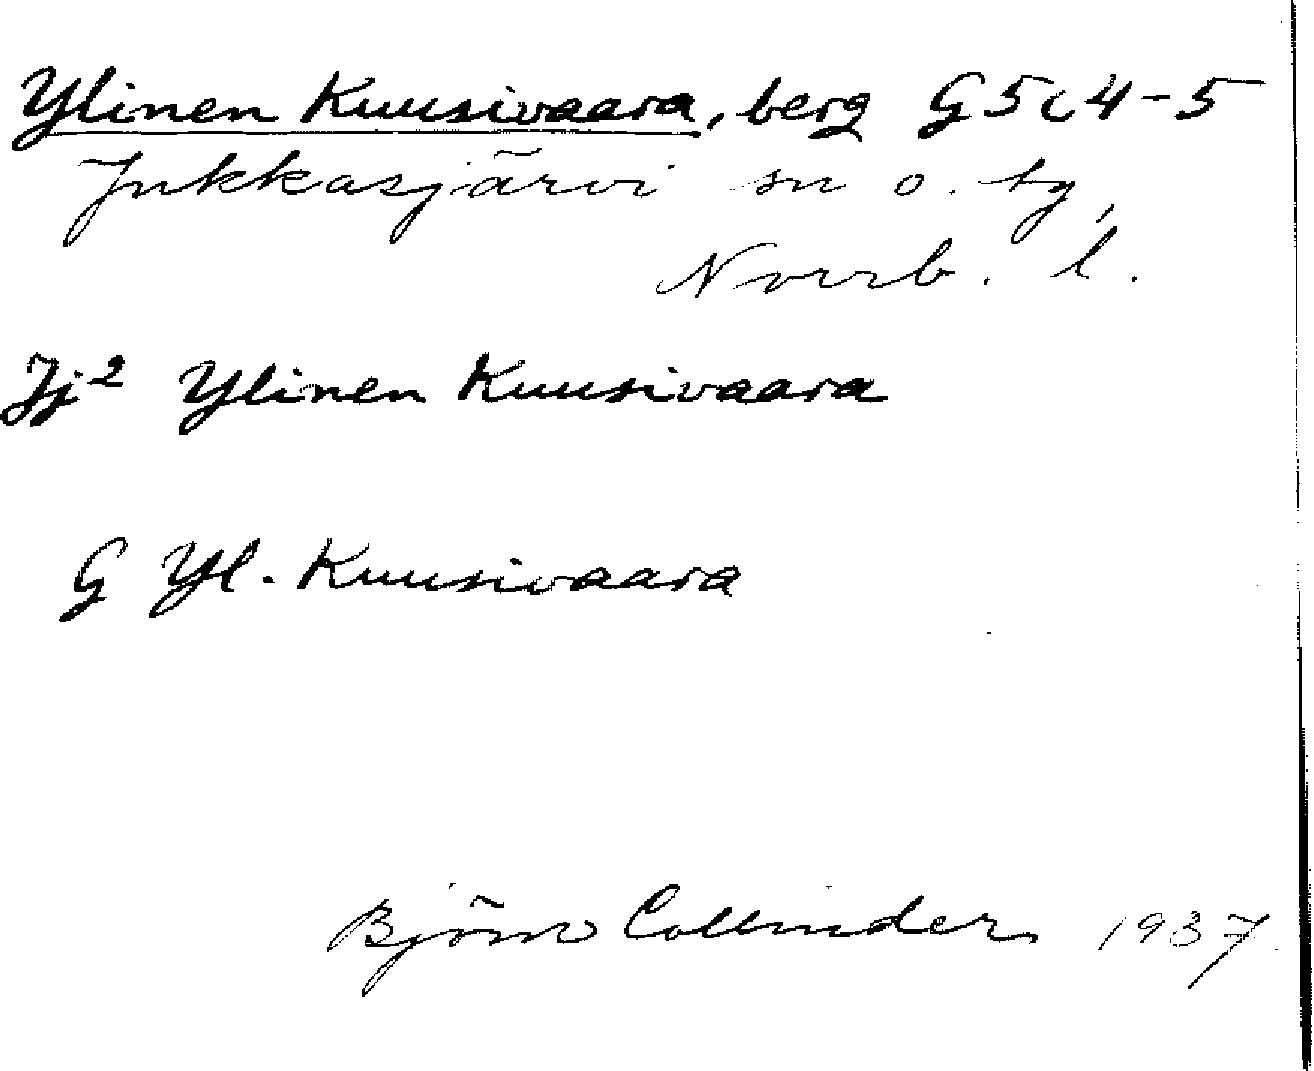 Ylinen Kuusivaara, berg G5c4-5
Jukkasjärvi sn o. tg,
Norrb. l.
Jj² Ylinen Kuusivaara
G Yl. Kuusivaara
Björn Collinder 1937